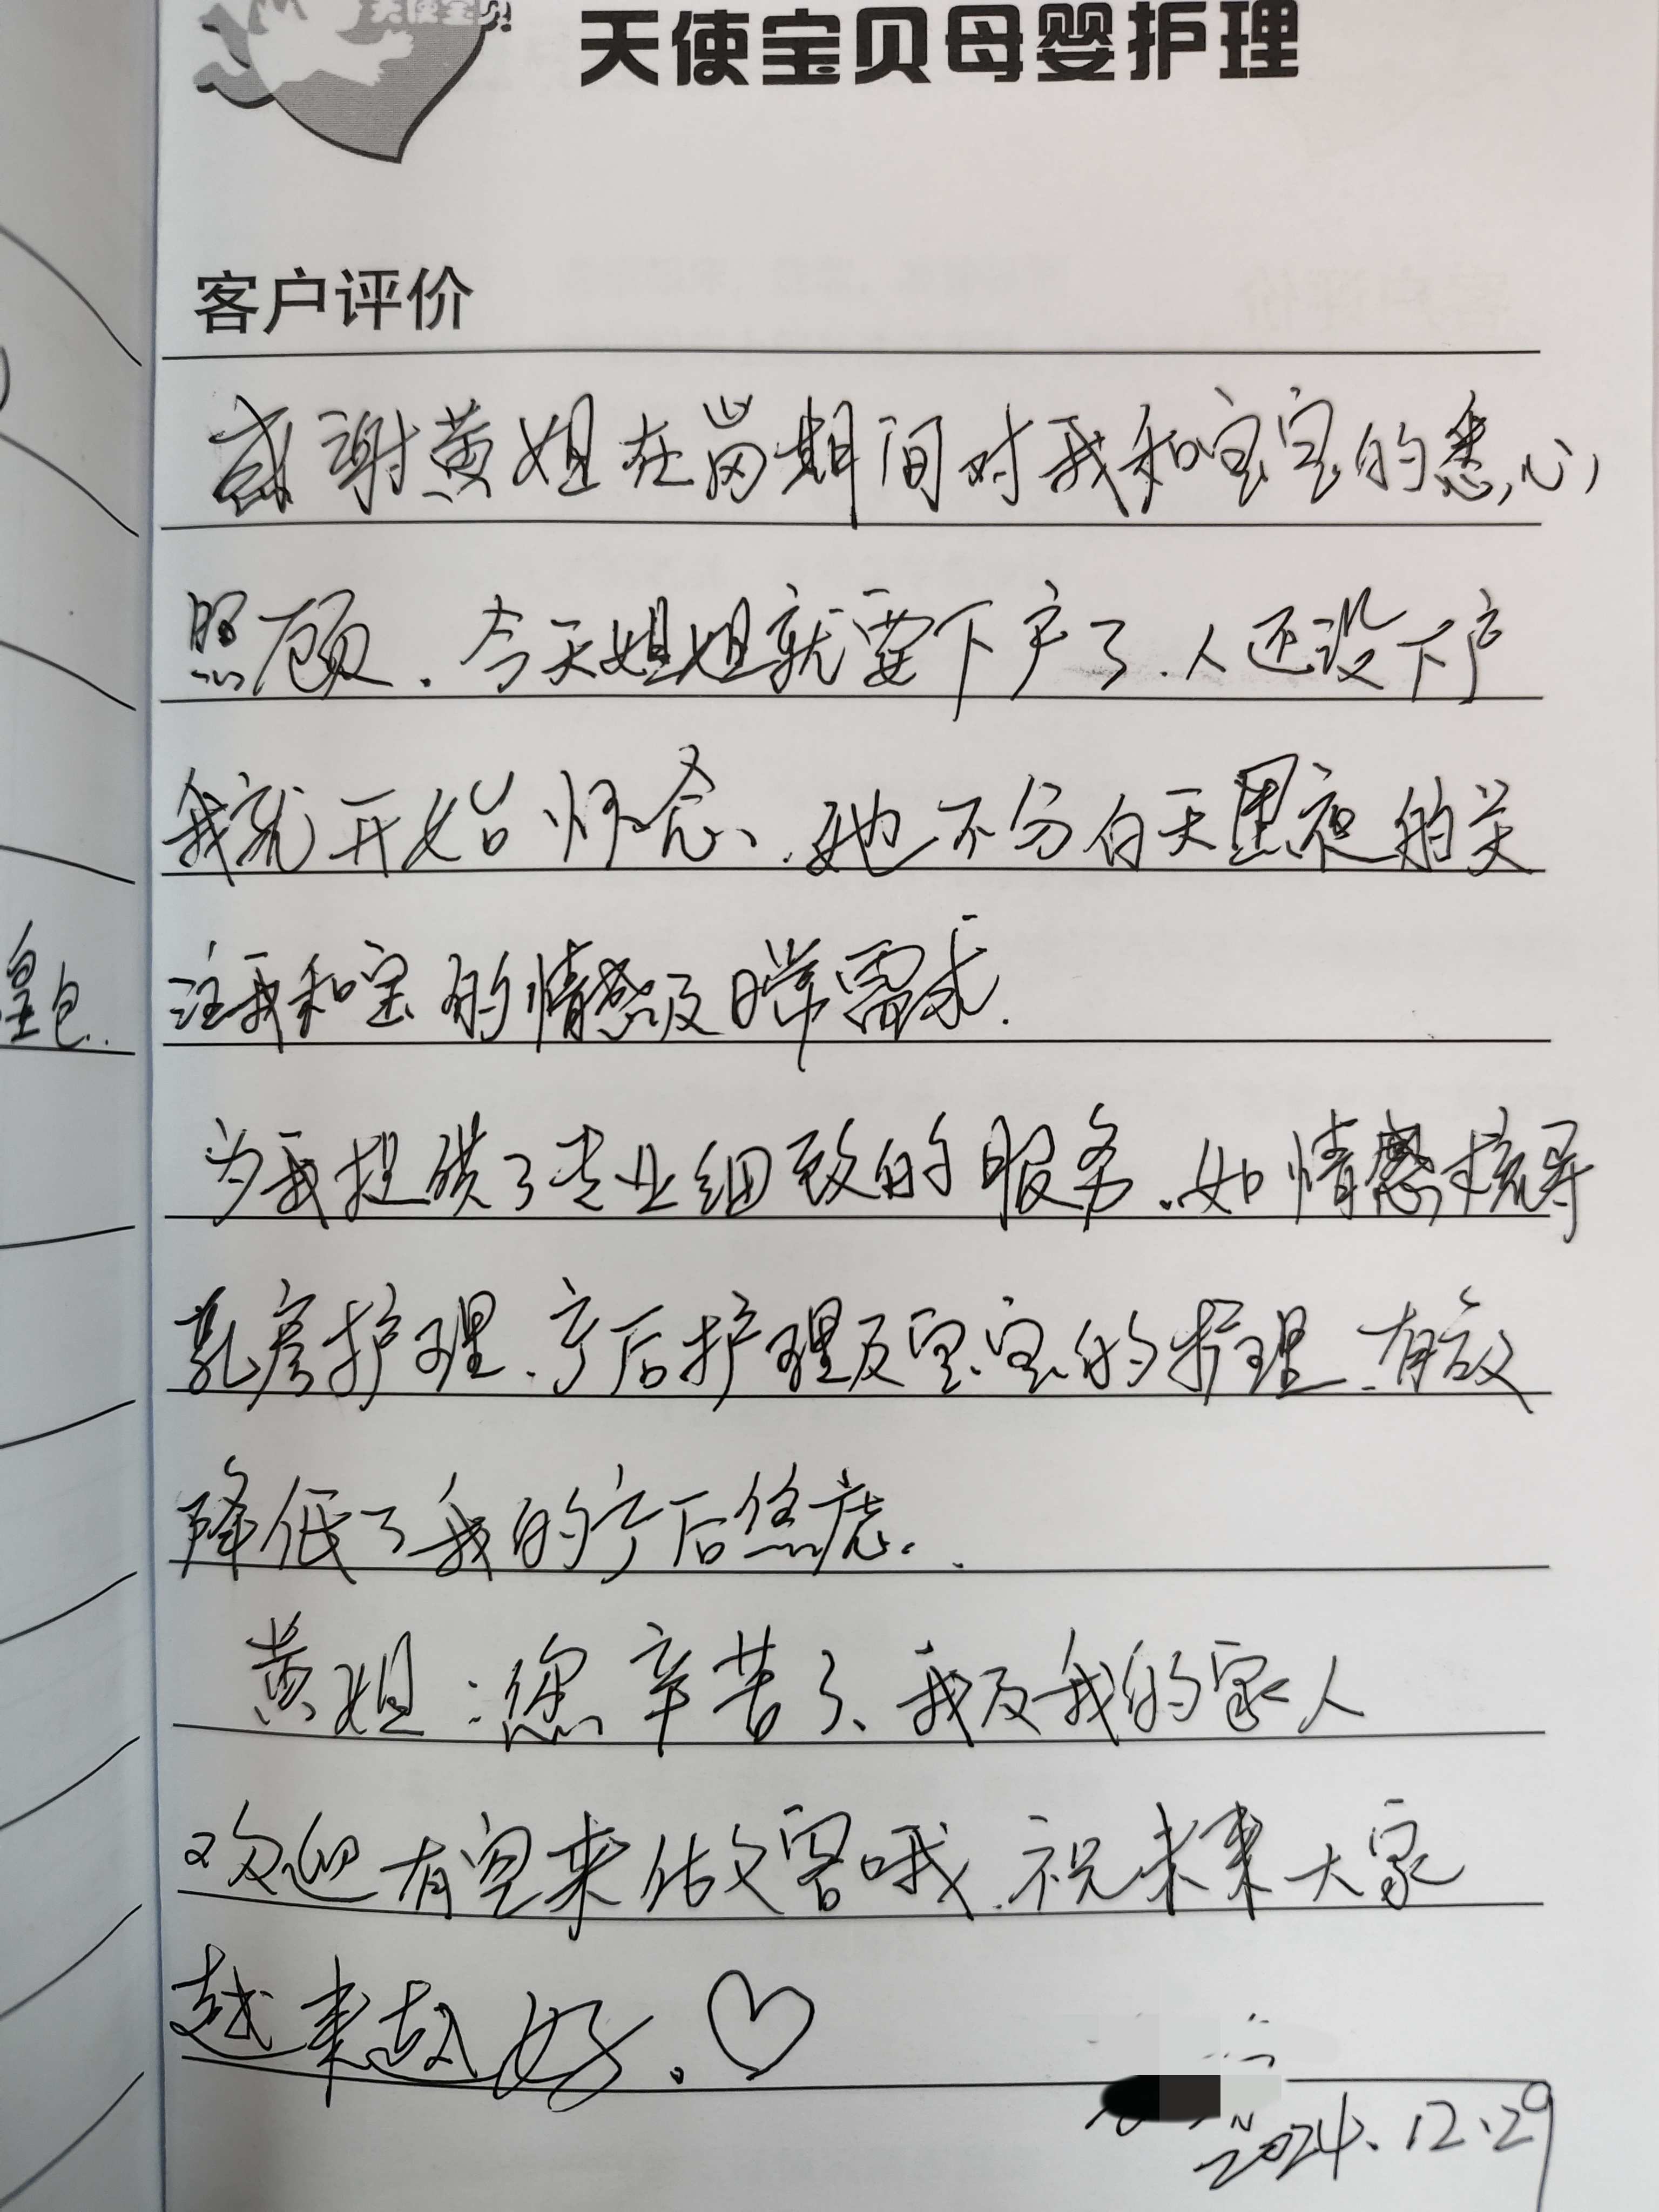 天使宝贝母婴护理
客户评价
感谢黄姐在岗期间对我和宝宝的悉心
照顾.今天姐姐就要下户了.人还没下户
我就开始怀念、她不分白天黑夜的关
注我和宝的情感及日常需求.
为我提供了专业细致的服务、如情感疏导
乳房护理、产后护理及宝宝的护理、有效
降低了我的产后焦虑.
黄姐:您辛苦了、我及我的家人
欢迎有空来做客哦.祝未来大家
越来越好.♡
2024.12.29
皇包..